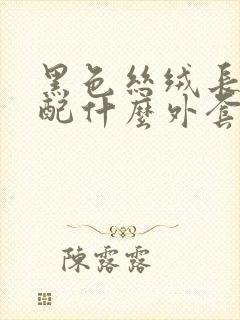 黑色絲絨長
配什麼外套
陳露露